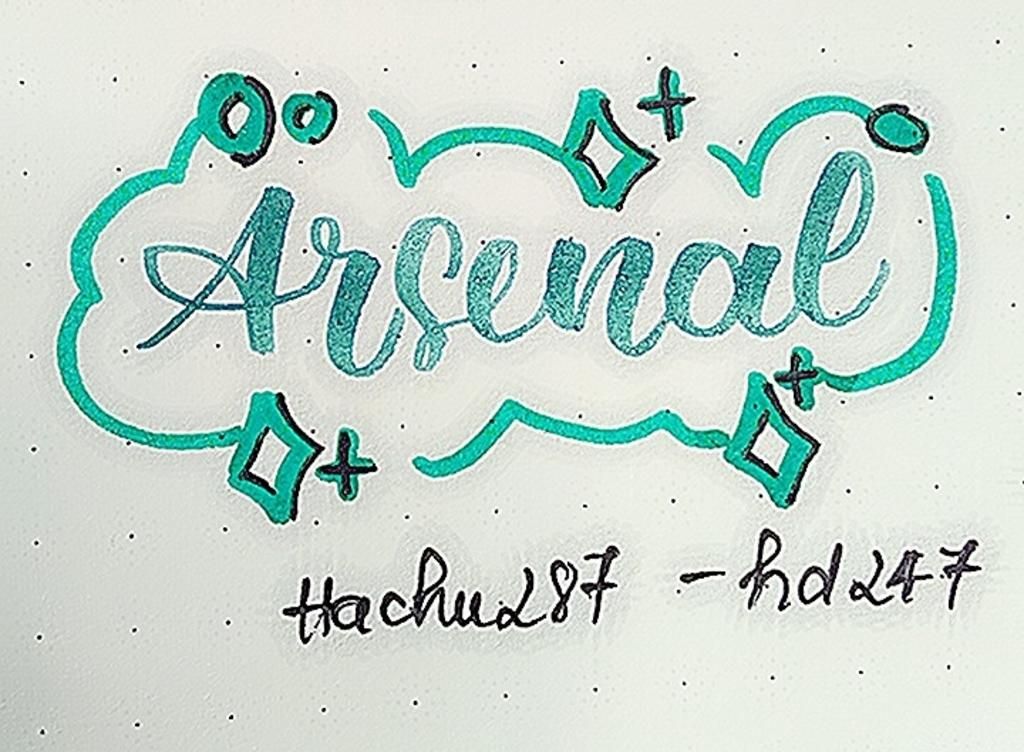 Arsenal
Hachu287 - hd247